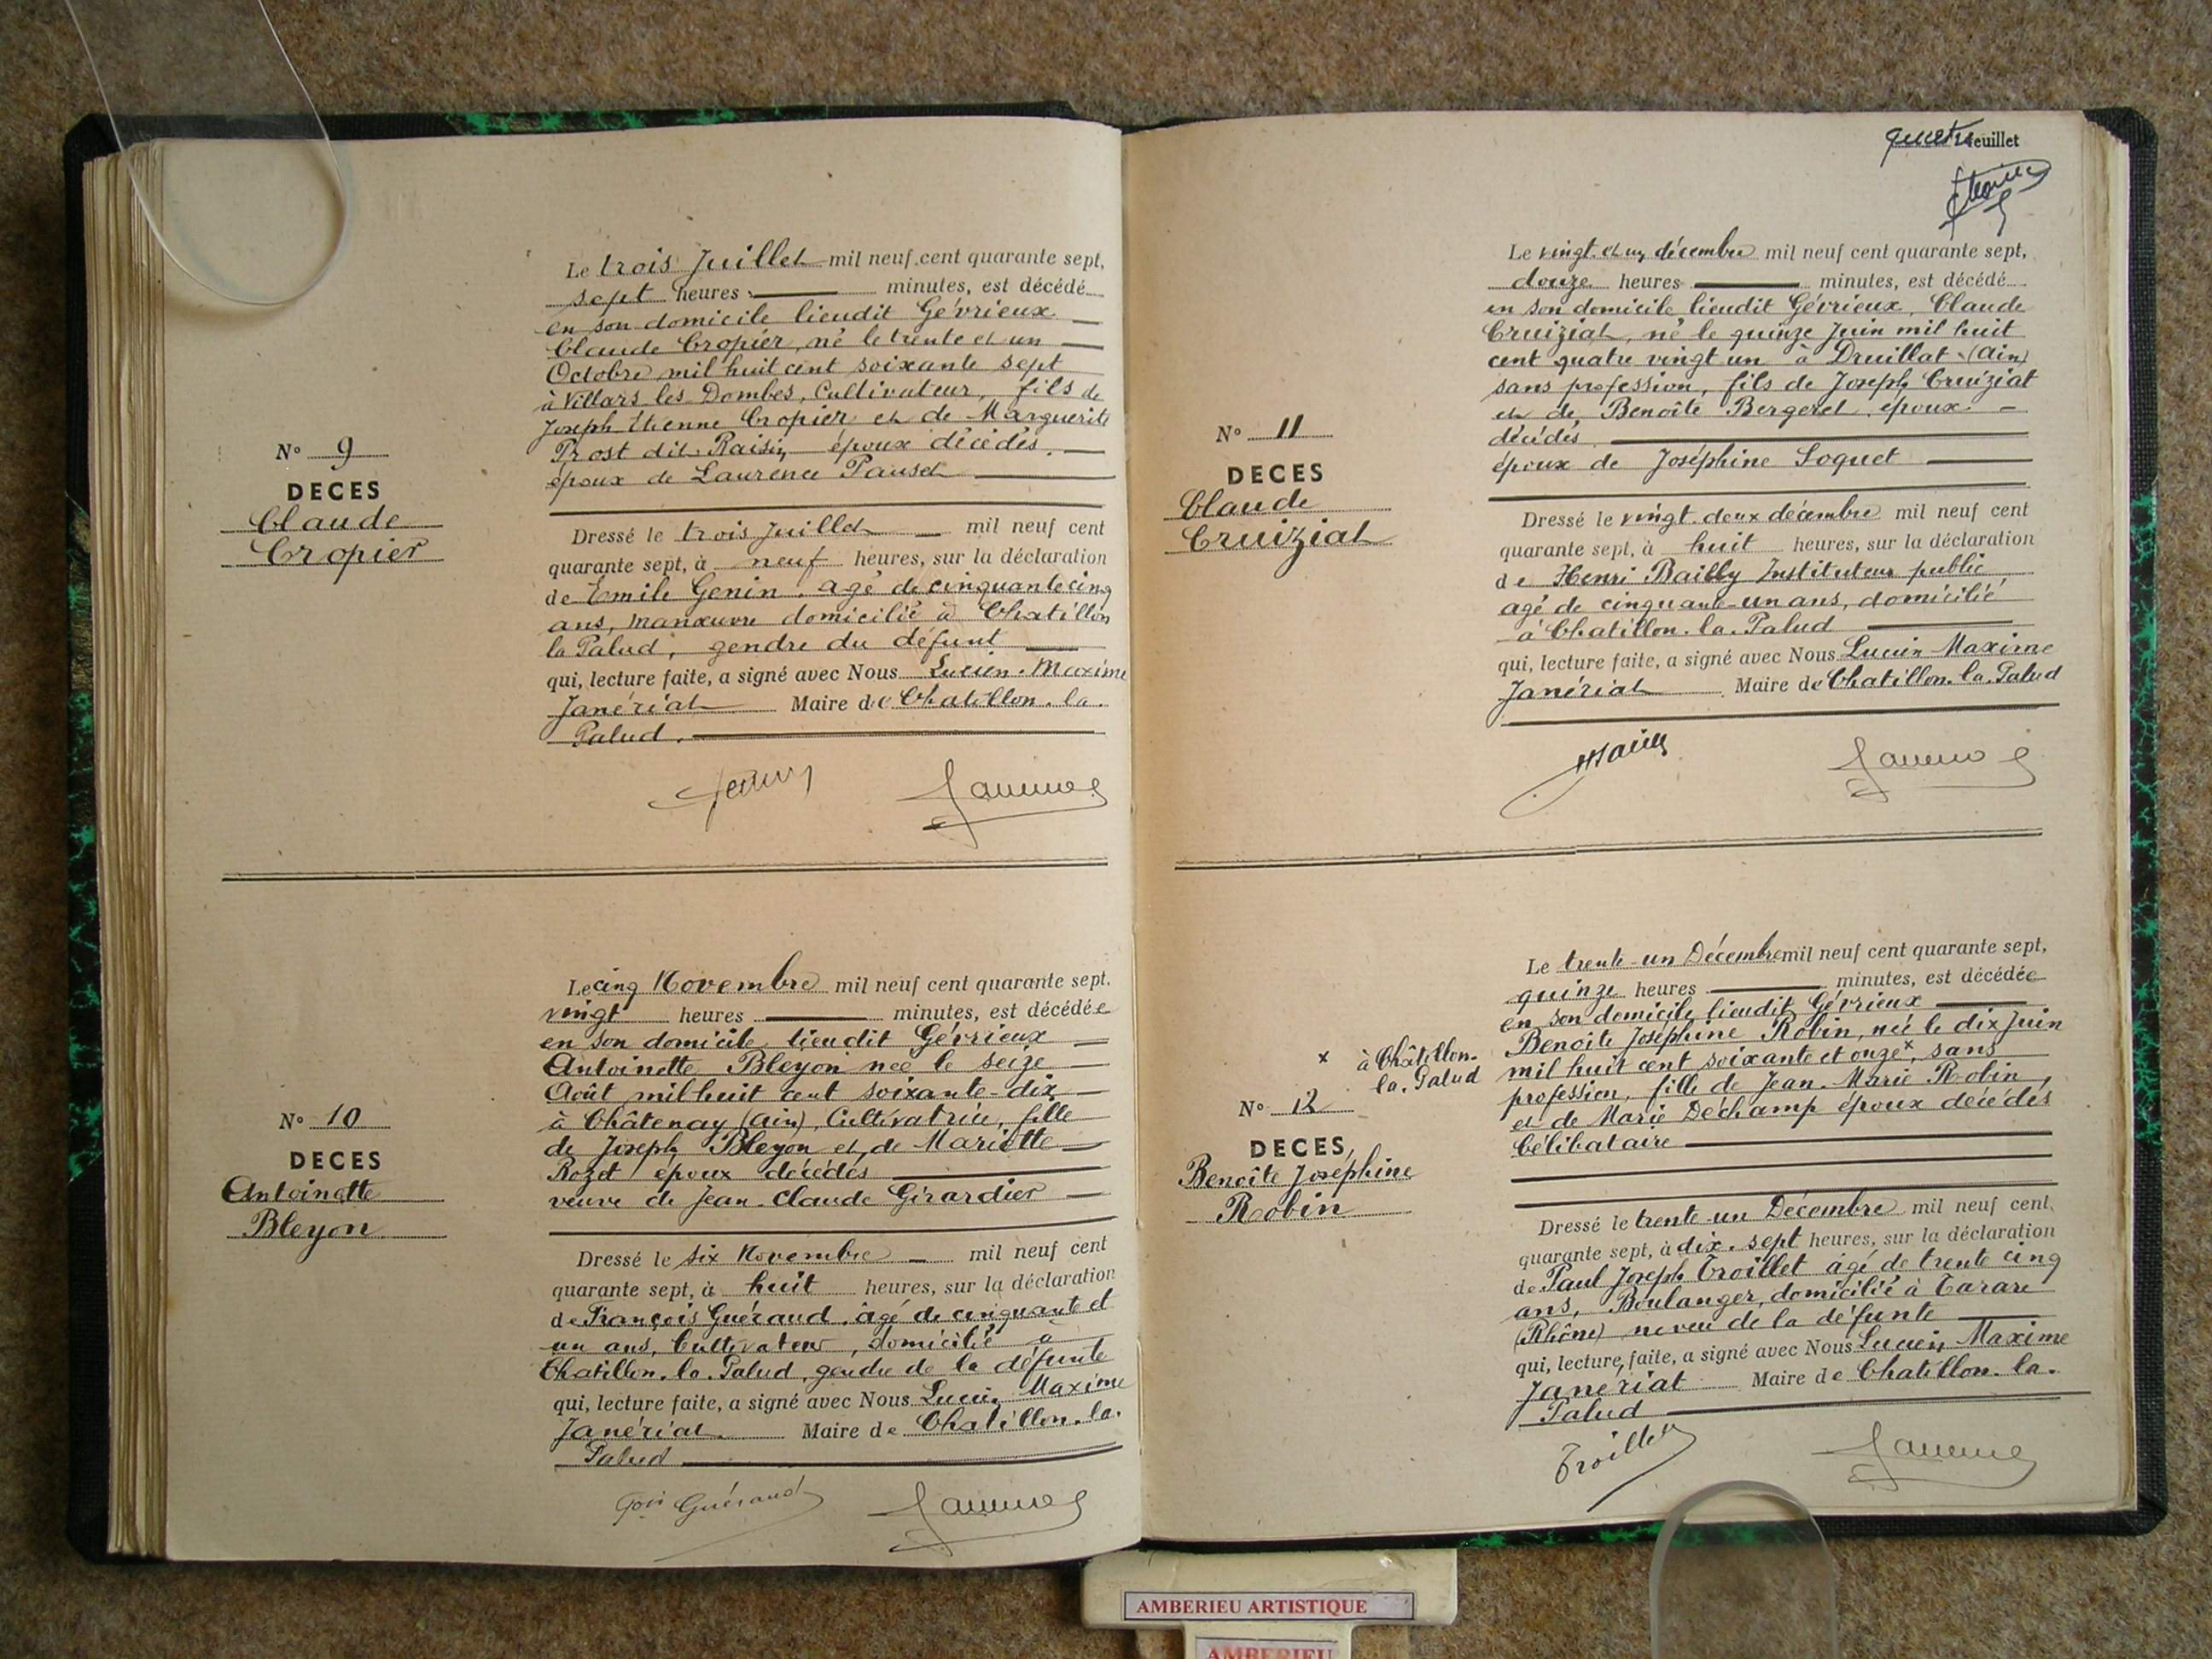 N° 9
DECES
Claude
Cropier
Le trois Juillet mil neuf cent quarante sept,
sept heures minutes, est décédé
en son domicile lieudit Gévrieux
Claude Cropier, né le trente et un
Octobre mil huit cent soixante sept
à Villars les Dombes, Cultivateur, fils de
Joseph Etienne Cropier et de Marguerite
Prost dit Raisin époux décédés.
époux de Laurence Pauset
Dressé le trois Juillet mil neuf cent
quarante sept, à neuf heures, sur la déclaration
de Emile Genin, agé de cinquante cinq
ans, manœuvre domicilié à Chatillon
la Palud, gendre du défunt
qui, lecture faite, a signé avec Nous Lucien Maxime
Janériat Maire de Chatillon-la-
Palud.
N° 10
DECES
Antoinette
Bleyon
Le cinq Novembre mil neuf cent quarante sept,
vingt heures minutes, est décédée
en son domicile lieudit Gévrieux
Antoinette Bleyon née le seize
Août mil huit cent soixante-dix
à Châtenay (Ain), Cultivatrice, fille
de Joseph Bleyon et de Mariette
Rozet époux décédés
veuve de Jean-Claude Girardier
Dressé le six Novembre mil neuf cent
quarante sept, à huit heures, sur la déclaration
de François Guéraud, âgé de cinquante et
un ans, Cultivateur, domicilié à
Chatillon-la-Palud, gendre de la défunte
qui, lecture faite, a signé avec Nous Lucien Maxime
Janériat Maire de Chatillon-la-
Palud
Guéraud
feuillet
N° 11
DECES
Claude
Cruiziat
Le vingt et un décembre mil neuf cent quarante sept,
douze heures minutes, est décédé
en son domicile lieudit Gévrieux, Claude
Cruiziat, né le quinze Juin mil huit
cent quatre vingt un à Druillat (Ain)
sans profession, fils de Joseph Cruiziat
et de Benoîte Bergeret époux
décédés
époux de Joséphine Soquet
Dressé le vingt-deux décembre mil neuf cent
quarante sept, à huit heures, sur la déclaration
de Henri Bailly Instituteur public
agé de cinquante-un ans, domicilié
à Chatillon-la-Palud
qui, lecture faite, a signé avec Nous Lucien Maxime
Janériat Maire de Chatillon-la-Palud
x à Châtillon-
la-Palud
N° 12
DECES
Benoîte Joséphine
Robin
Le trente-un Décembre mil neuf cent quarante sept,
quinze heures minutes, est décédée
en son domicile lieudit Gévrieux
Benoîte Joséphine Robin, née le dix Juin
mil huit cent soixante et onze x, sans
profession, fille de Jean-Marie Robin,
et de Marie Dechamp époux décédés
Célibataire
Dressé le trente-un Décembre mil neuf cent
quarante sept, à dix-sept heures, sur la déclaration
de Paul Joseph Troillet âgé de trente cinq
ans, Boulanger, domicilié à Tarare
(Rhône) neveu de la défunte
qui, lecture faite, a signé avec Nous Lucien Maxime
Janériat Maire de Chatillon-la-
Palud
Troillet
AMBERIEU ARTISTIQUE
AMBERIEU